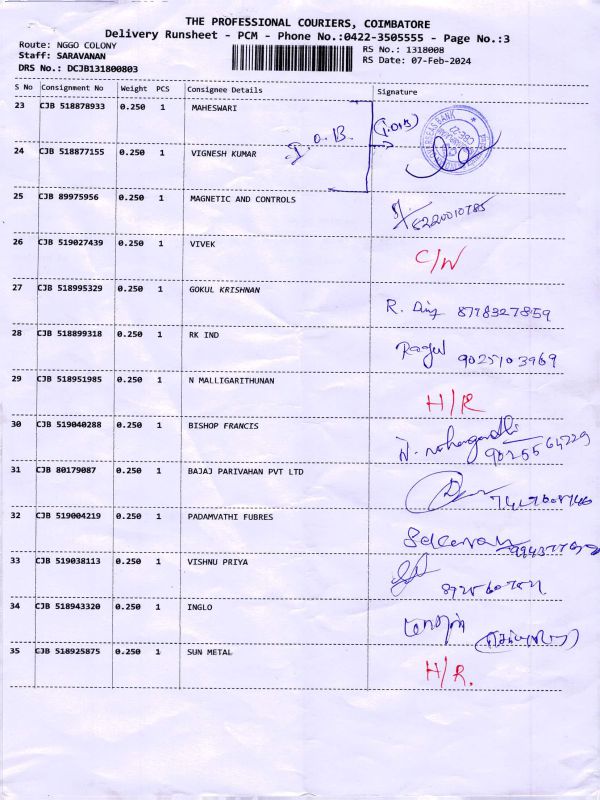 THE PROFESSIONAL COURIERS, COIMBATORE
Delivery Runsheet - PCM - Phone No.:0422-3505555 - Page No.:3
Route: NGGO COLONY
Staff: SARAVANAN
DRS No.: DCJB131800803
RS No.: 1318008
RS Date: 07-Feb-2024
S No Consignment No Weight PCS Consignee Details Signature
23 CJB 518878933 0.250 1 MAHESWARI
I.O.B. (I.O.B)
24 CJB 518877155 0.250 1 VIGNESH KUMAR
25 CJB 89975956 0.250 1 MAGNETIC AND CONTROLS
26 CJB 519027439 0.250 1 VIVEK C/W
27 CJB 518995329 0.250 1 GOKUL KRISHNAN R. 8778327859
28 CJB 518899318 0.250 1 RK IND Ragul 9025103969
29 CJB 518951985 0.250 1 N MALLIGARITHUNAN H/R
30 CJB 519040288 0.250 1 BISHOP FRANCIS
31 CJB 80179087 0.250 1 BAJAJ PARIVAHAN PVT LTD
32 CJB 519004219 0.250 1 PADAMVATHI FUBRES
33 CJB 519038113 0.250 1 VISHNU PRIYA
34 CJB 518943320 0.250 1 INGLO
35 CJB 518925875 0.250 1 SUN METAL H/R.